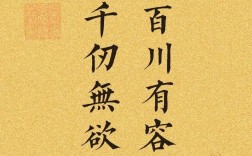 百川有容
千仞無欲